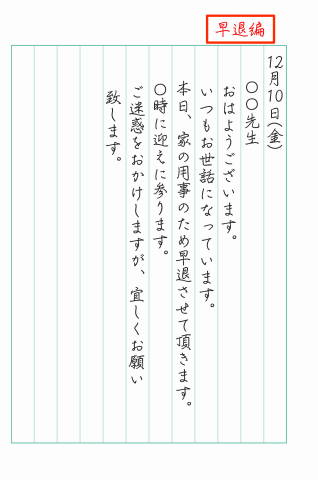 早退編
12月10日(金)
○○先生
おはようございます。
いつもお世話になっています。
本日、家の用事のため早退させて頂きます。
○時に迎えに参ります。
ご迷惑をおかけしますが、宜しくお願い
致します。